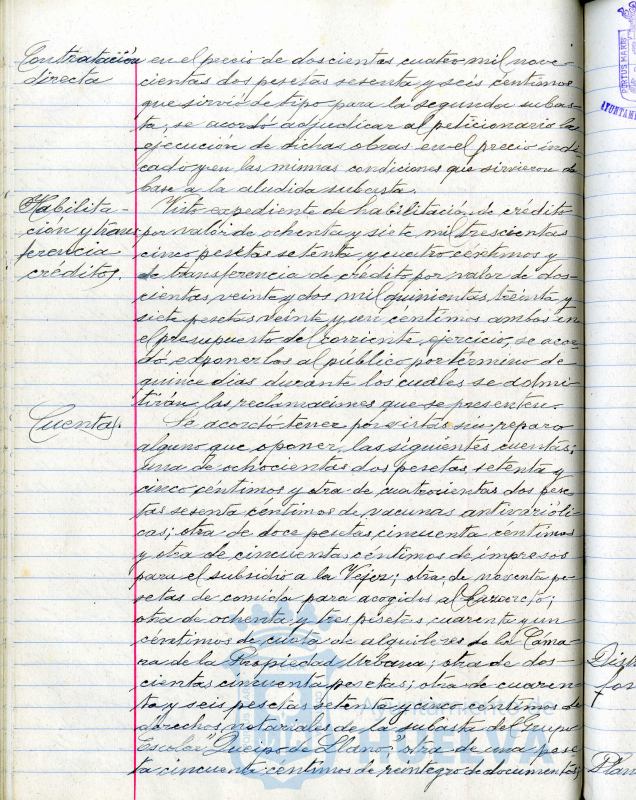 Contratación
directa
en el precio de doscientas cuatro mil nove-
cientas dos pesetas sesenta y seis céntimos
que sirvió de tipo para la segunda subas-
ta, se acordó adjudicar al peticionario la
ejecución de dichas obras en el precio indi-
cado y en las mismas condiciones que sirvieron de
base a la aludida subasta.
Habilita-
ción y trans
ferencia
créditos.
Visto expediente de habilitación de crédito
por valor de ochenta y siete mil trescientas
cinco pesetas setenta y cuatro céntimos y
de transferencia de crédito por valor de dos-
cientas veinte y dos mil quinientas treinta y
siete pesetas veinte y un céntimos ambos en
el presupuesto del corriente ejercicio, se acor-
dó exponerlos al público por término de
quince días durante los cuales se admi-
tirán las reclamaciones que se presenten.
Cuentas.
Se acordó tener por vistas sin reparo
alguno que oponer, las siguientes cuentas;
una de ochocientas dos pesetas setenta y
cinco céntimos y otra de cuatrocientas dos pese
tas sesenta céntimos de vacunas antivarióli-
cas; otra de doce pesetas cincuenta céntimos
y otra de cincuenta céntimos de impresos
para el subsidio a la Vejez; otra de noventa pe-
setas de comida para acogidos al
otra de ochenta y tres pesetas cuarenta y un
céntimos de cuota de alquileres de la Cáma-
ra de la Propiedad Urbana; otra de dos-
cientas cincuenta pesetas; otra de cuaren-
ta y seis pesetas setenta y cinco céntimos de
derechos notariales de la subasta del Grupo
Escolar "Queipo de Llano" otra de una pese
ta cincuenta céntimos de reintegro de documentos;
PORTUS MARIS
AYUNTAM
Dist
for
Plan
HUELVA